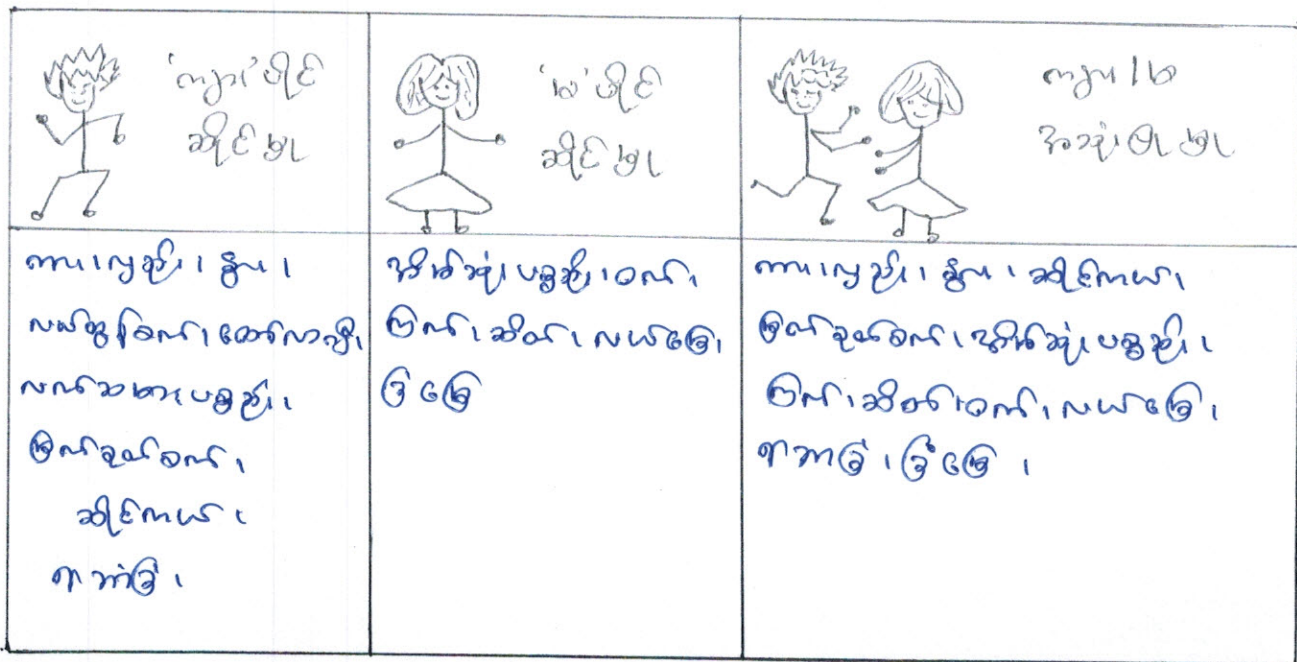 ‘ကျား’ ပိုင်
ဆိုင်မှု
‘မ’ ပိုင်
ဆိုင်မှု
ကျား/မ
အသုံးပြုမှု
ကား၊ လှည်း၊ နွား၊
လယ်ထွန်စက်၊ ထော်လာဂျီ၊
လက်သမားပစ္စည်း၊
မြက်ခုတ်စက်၊
ဆိုင်ကယ်၊
ရာဘာခြံ၊
အိမ်သုံးပစ္စည်း၊ ဝက်၊
ကြက်၊ ဆိတ်၊ လယ်မြေ၊
ခြံမြေ
ကား၊ လှည်း၊ နွား၊ ဆိုင်ကယ်၊
မြက်ခုတ်စက်၊ အိမ်သုံးပစ္စည်း၊
ကြက်၊ ဆိတ်၊ ဝက်၊ လယ်မြေ၊
ရာဘာခြံ၊ ခြံမြေ၊